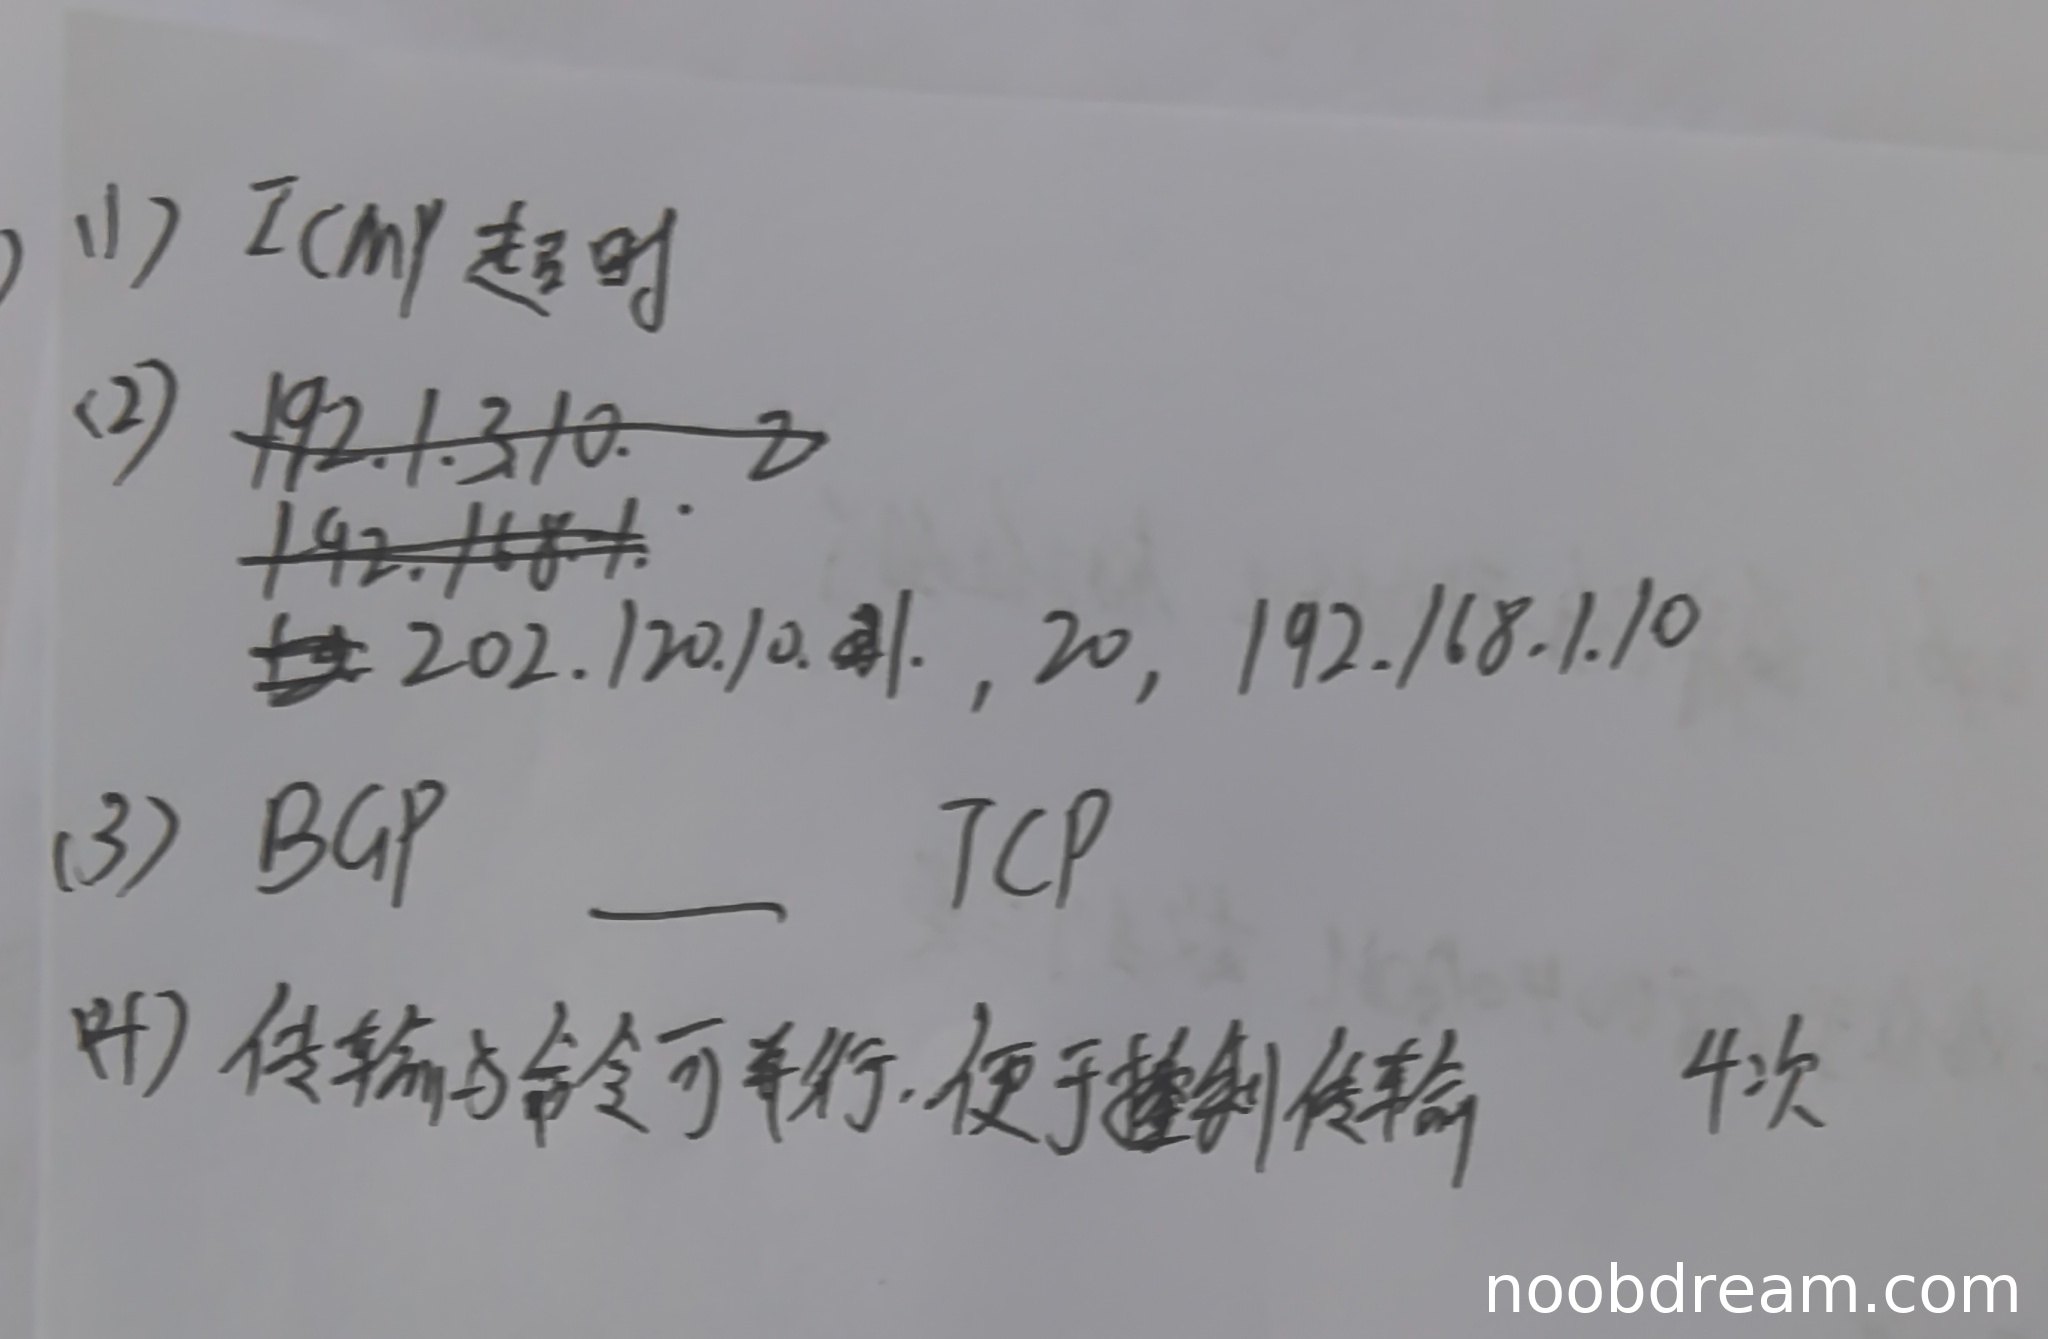 (1) ICMP 超时
(2) 192.1.310. 2
192.168.1.
202.120.10.1. , 20, 192.168.1.10
(3) BGP — TCP
(4) 传输与命令可并行.便于控制传输 4次
noobdream.com